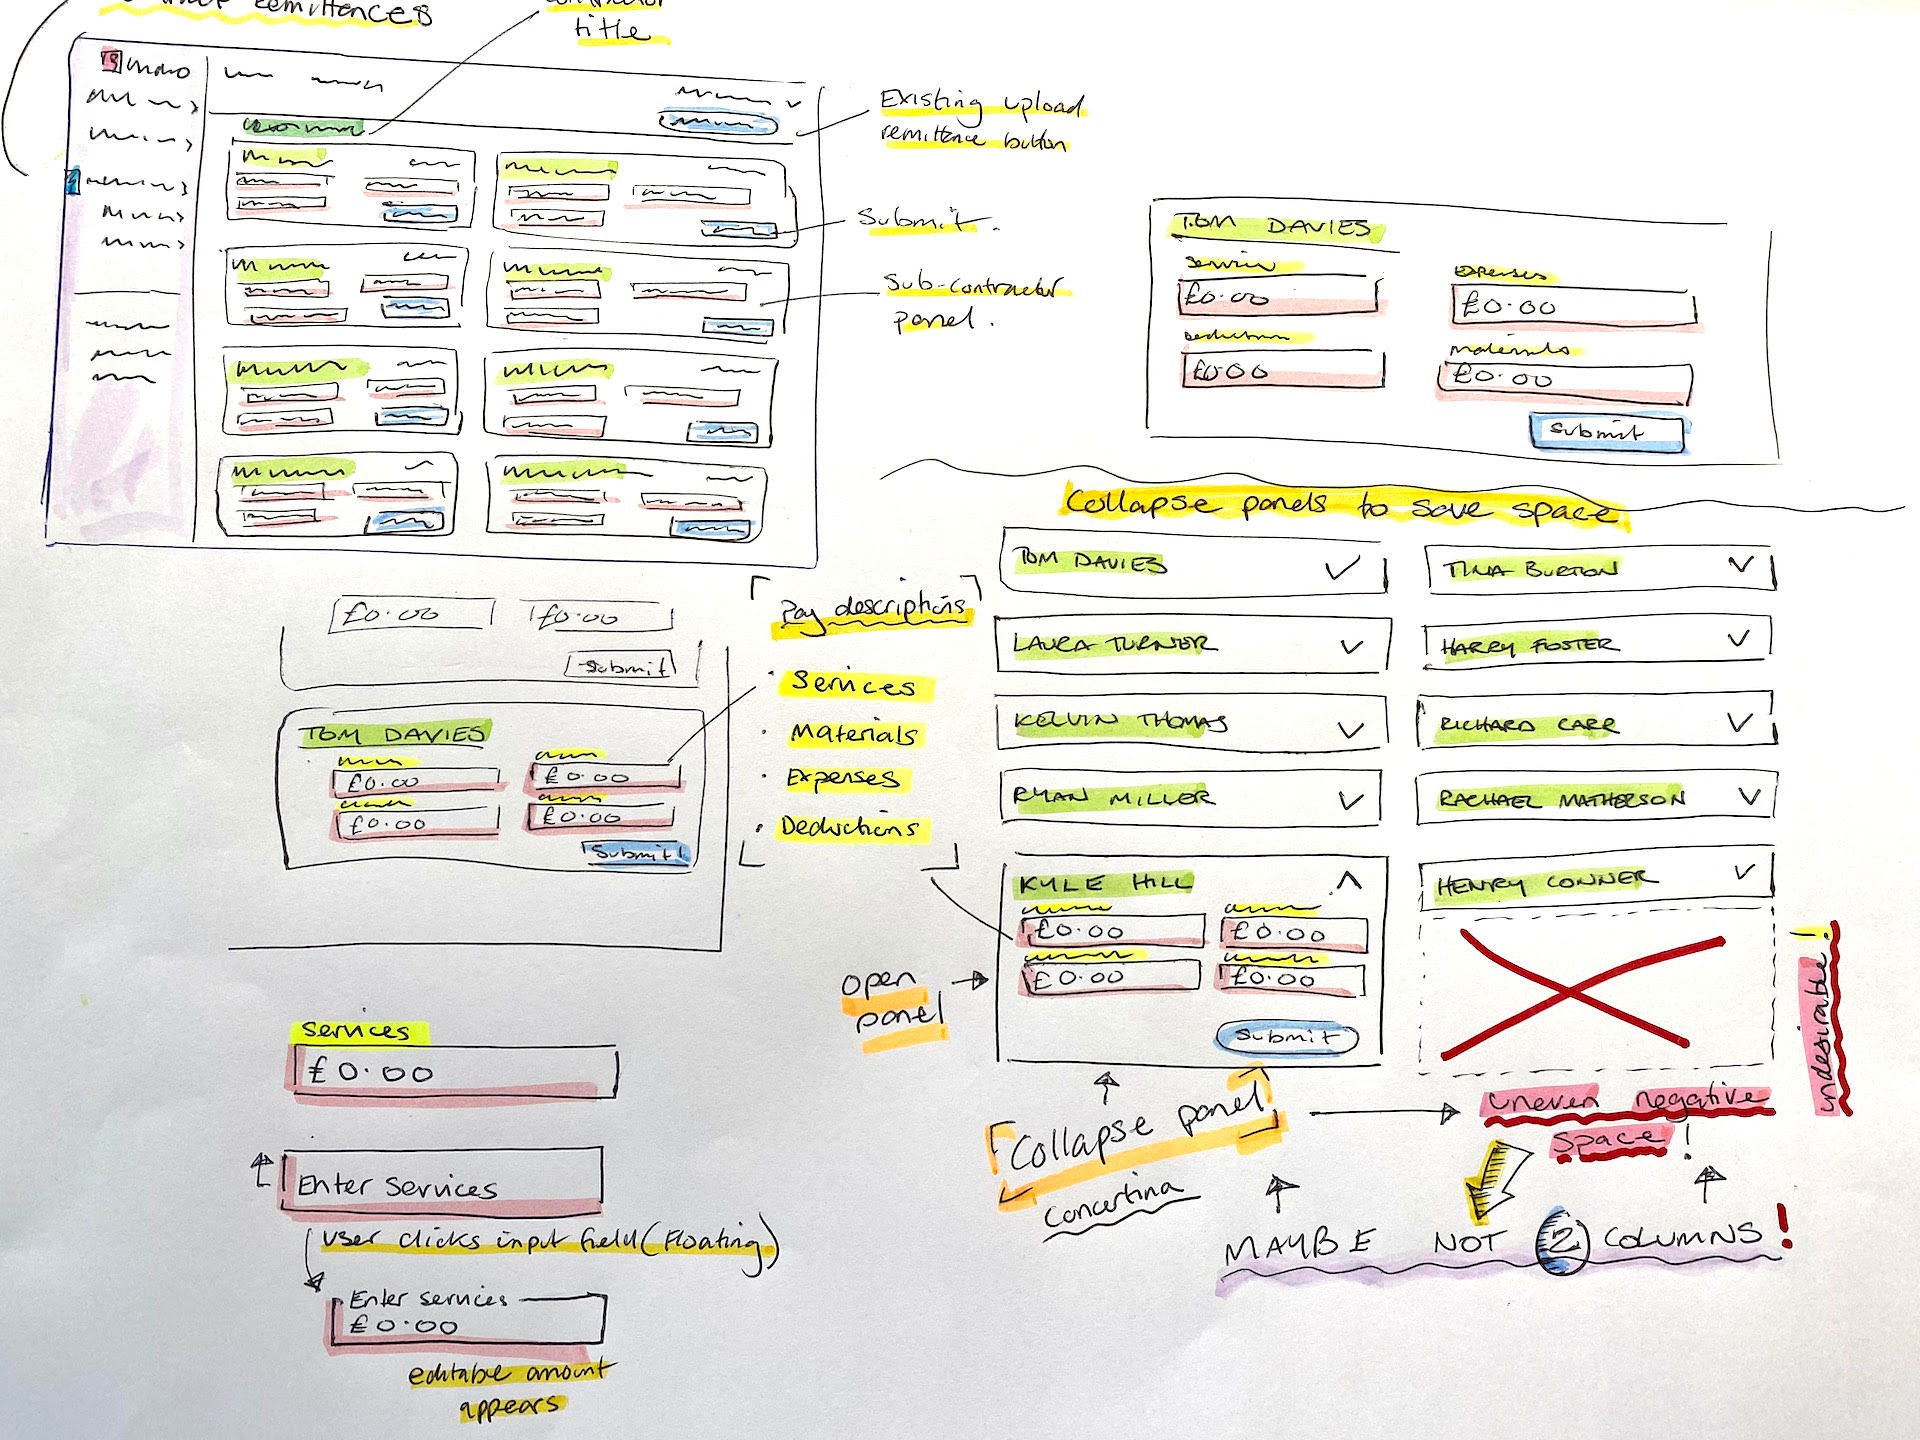 remittences
title
Existing upload
remittence button
Submit.
Sub-contractor
panel.
TOM DAVIES
Services
£0.00
Deductions
£0.00
expenses
£0.00
materials
£0.00
Submit
Collapse panels to save space
TOM DAVIES
TINA BURTON
LAURA TURNER
HARRY FOSTER
KELVIN THOMAS
RICHARD CARR
RYAN MILLER
RACHAEL MATHERSON
KYLE HILL
£0.00 £0.00
£0.00 £0.00
Submit
HENRY CONNER
open
panel
Collapse panel
concertina
uneven negative
space!
undesirable!
MAYBE NOT 2 COLUMNS!
£0.00 £0.00
Submit
TOM DAVIES
£0.00 £0.00
£0.00 £0.00
Submit
Pay descriptions
· Services
· Materials
· Expenses
· Deductions
Services
£0.00
Enter Services
user clicks input field (Floating)
Enter services
£0.00
editable amount
appears